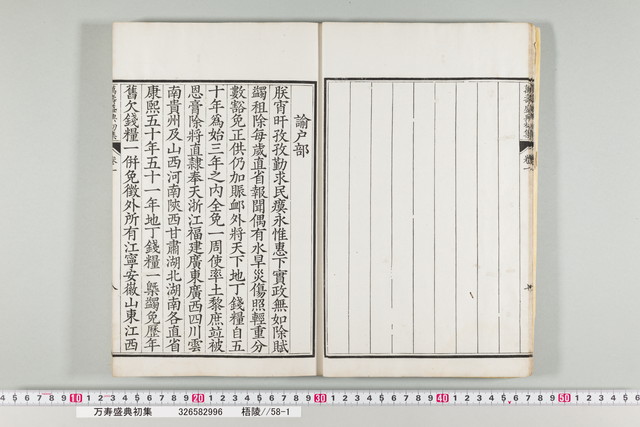 諭户部
朕宵旰孜孜勤求民瘼永惟惠下實政無如除賦
蠲租除每歲直省報聞偶有水旱災傷照輕重分
數豁免正供仍加賑䘏外將天下地丁錢糧自五
十年爲始三年之内全免一周使率土黎庶竝被
恩膏除將直隷奉天浙江福建廣東廣西四川雲
南貴州及山西河南陜西甘肅湖北湖南各直省
康熙五十年五十一年地丁錢糧一槩蠲免歷年
舊欠錢糧一併免徵外所有江寧安徽山東江西
10 20 30 40 50
万寿盛典初集 326582996 梧陵//58-1